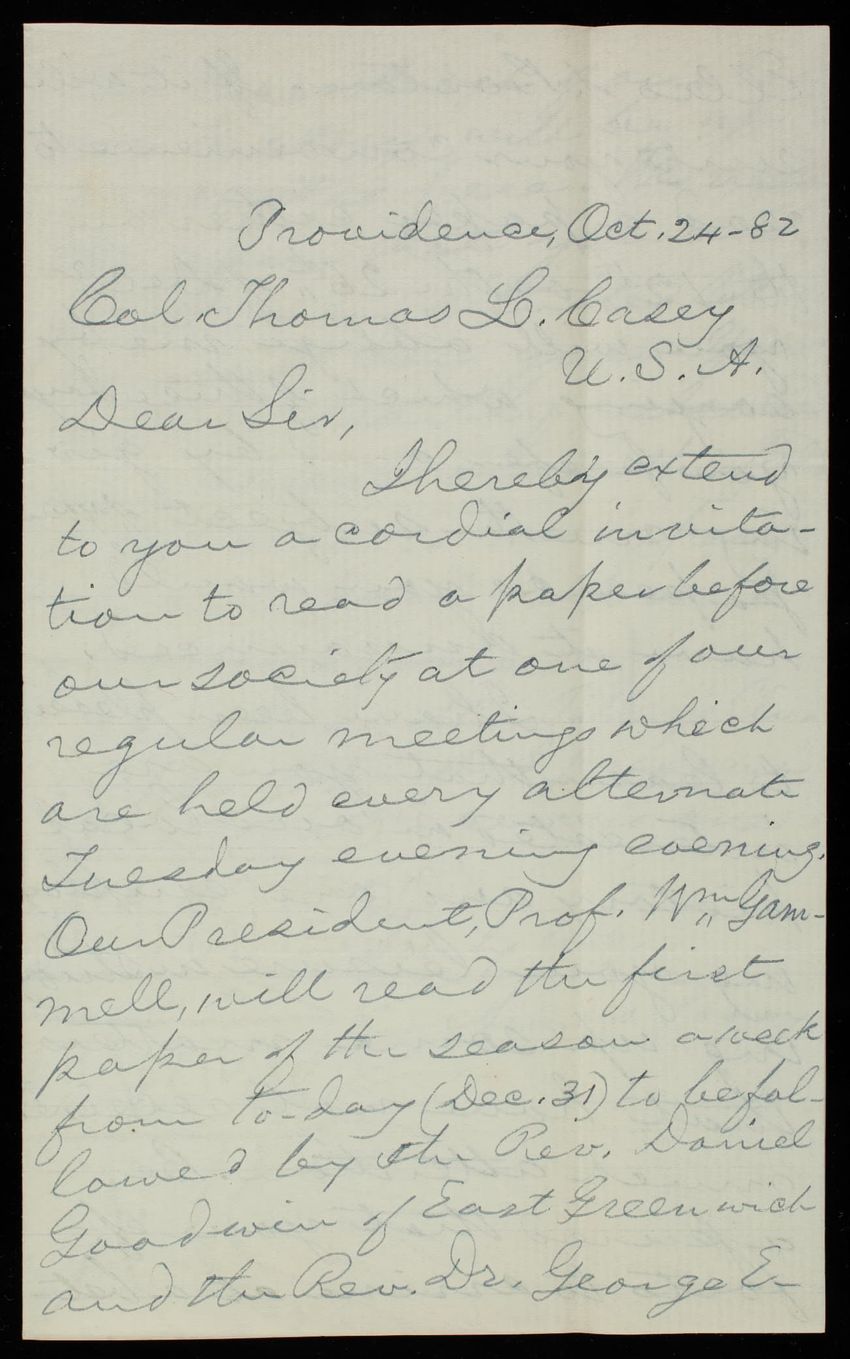 Providence, Oct. 24-82
Col. Thomas L. Casey
U.S.A.
Dear Sir,
I hereby extend
to you a cordial invita-
tion to read a paper before
our society at one of our
regular meetings which
are held every alternate
Tuesday evening evening.
Our President, Prof. Wm Gam-
mell, will read the first
paper of the season a week
from to-day (Dec. 31) to be fol-
lowed by the Rev. Daniel
Goodwin of East Greenwich
and the Rev. Dr. George E-